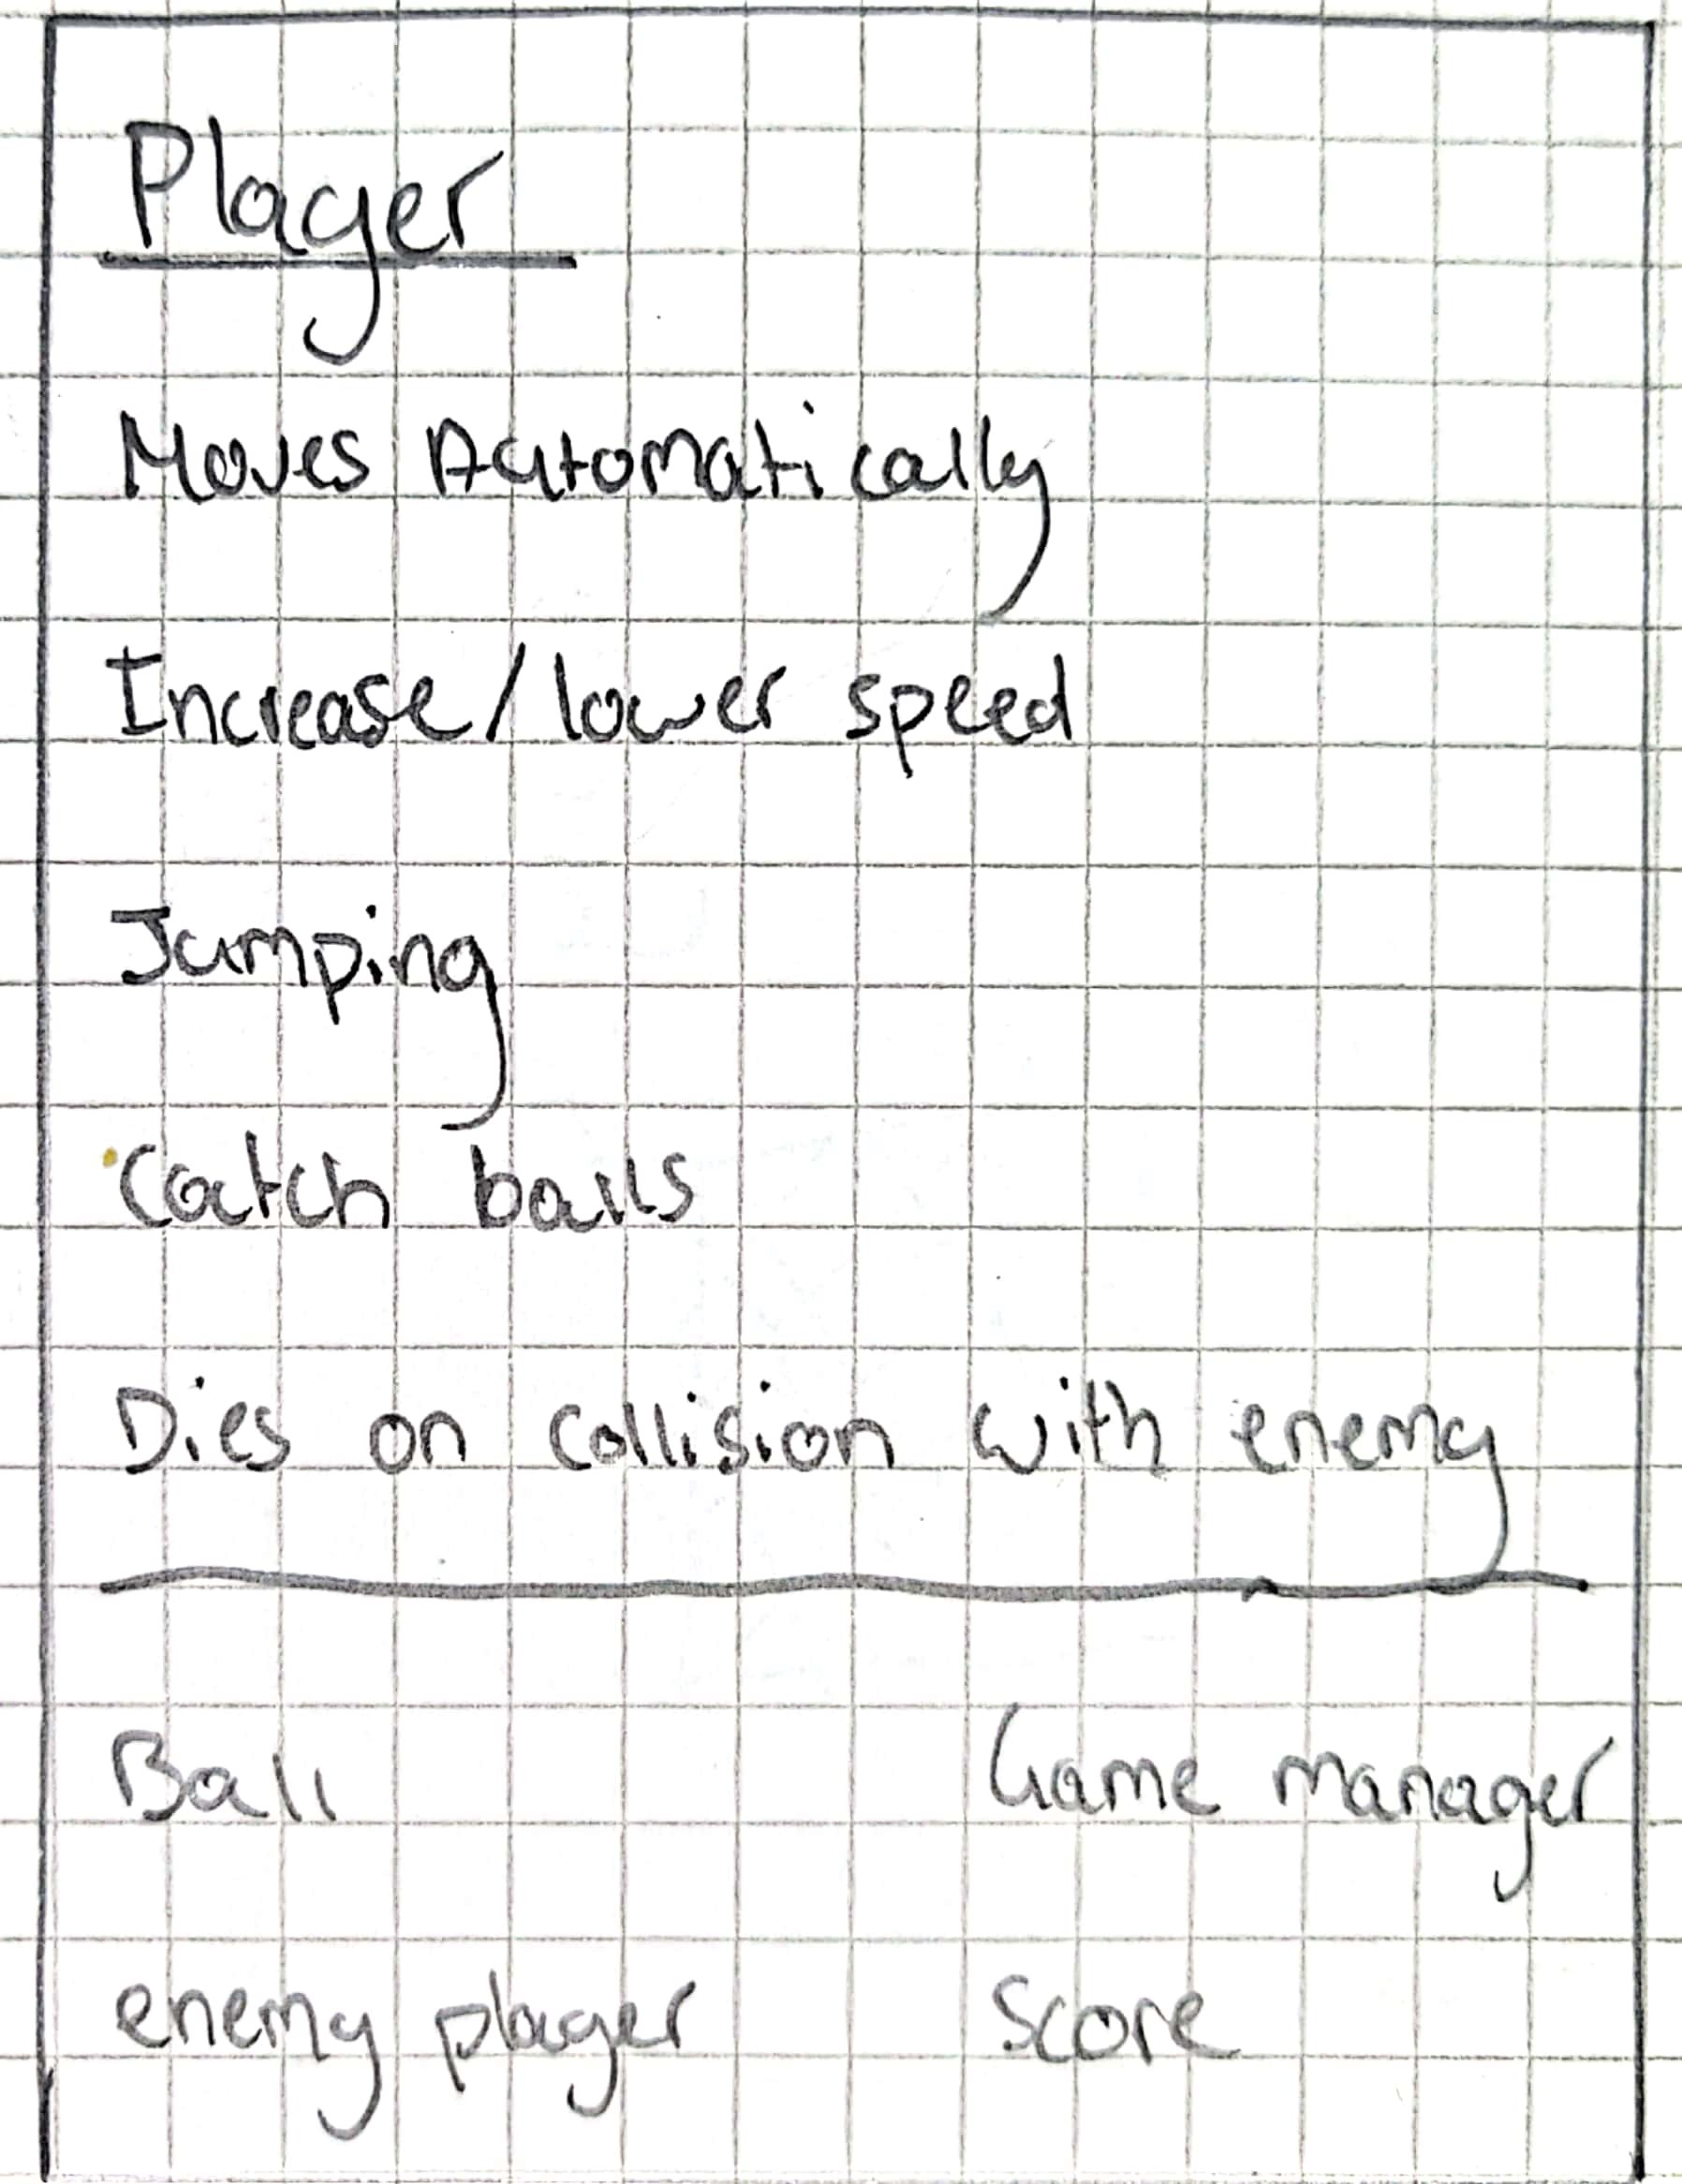 Player
Moves Automatically
Increase/lower speed
Jumping
Catch balls
Dies on collision with enemy
Ball Game manager
enemy player score